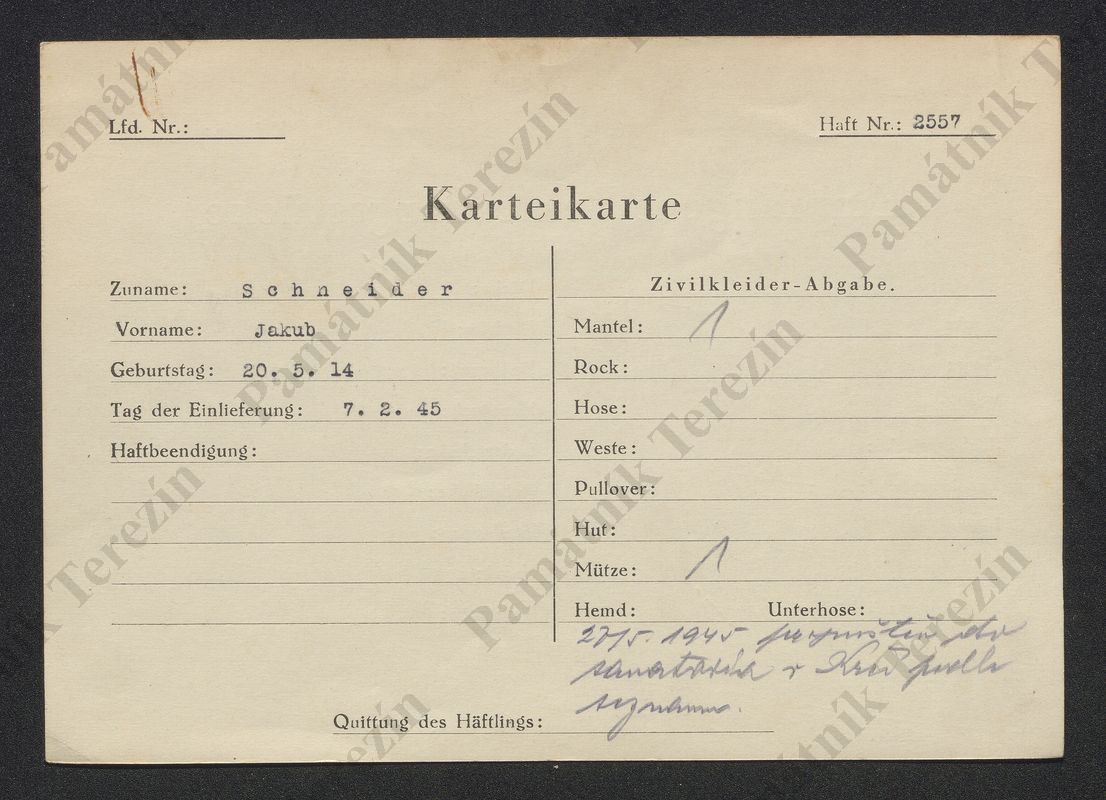 Lfd. Nr.:
Haft Nr.: 2557
Karteikarte
Zuname: Schneider
Vorname: Jakub
Geburtstag: 20. 5. 14
Tag der Einlieferung: 7. 2. 45
Haftbeendigung:
Zivilkleider-Abgabe.
Mantel: 1
Rock:
Hose:
Weste:
Pullover:
Hut:
Mütze: 1
Hemd: Unterhose:
27/5. 1945 propuštěn do
sanatoria v Krči podle
seznamu.
Quittung des Häftlings:
Památník Terezín